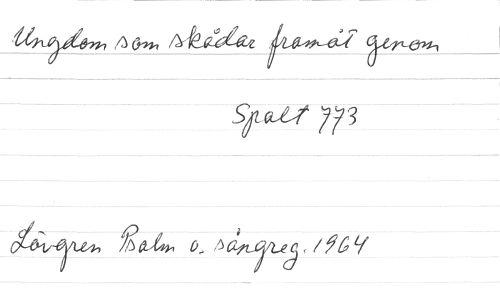 Ungdom som skådar framåt genom
Spalt 773
Lövgren Psalm o. sångreg. 1964